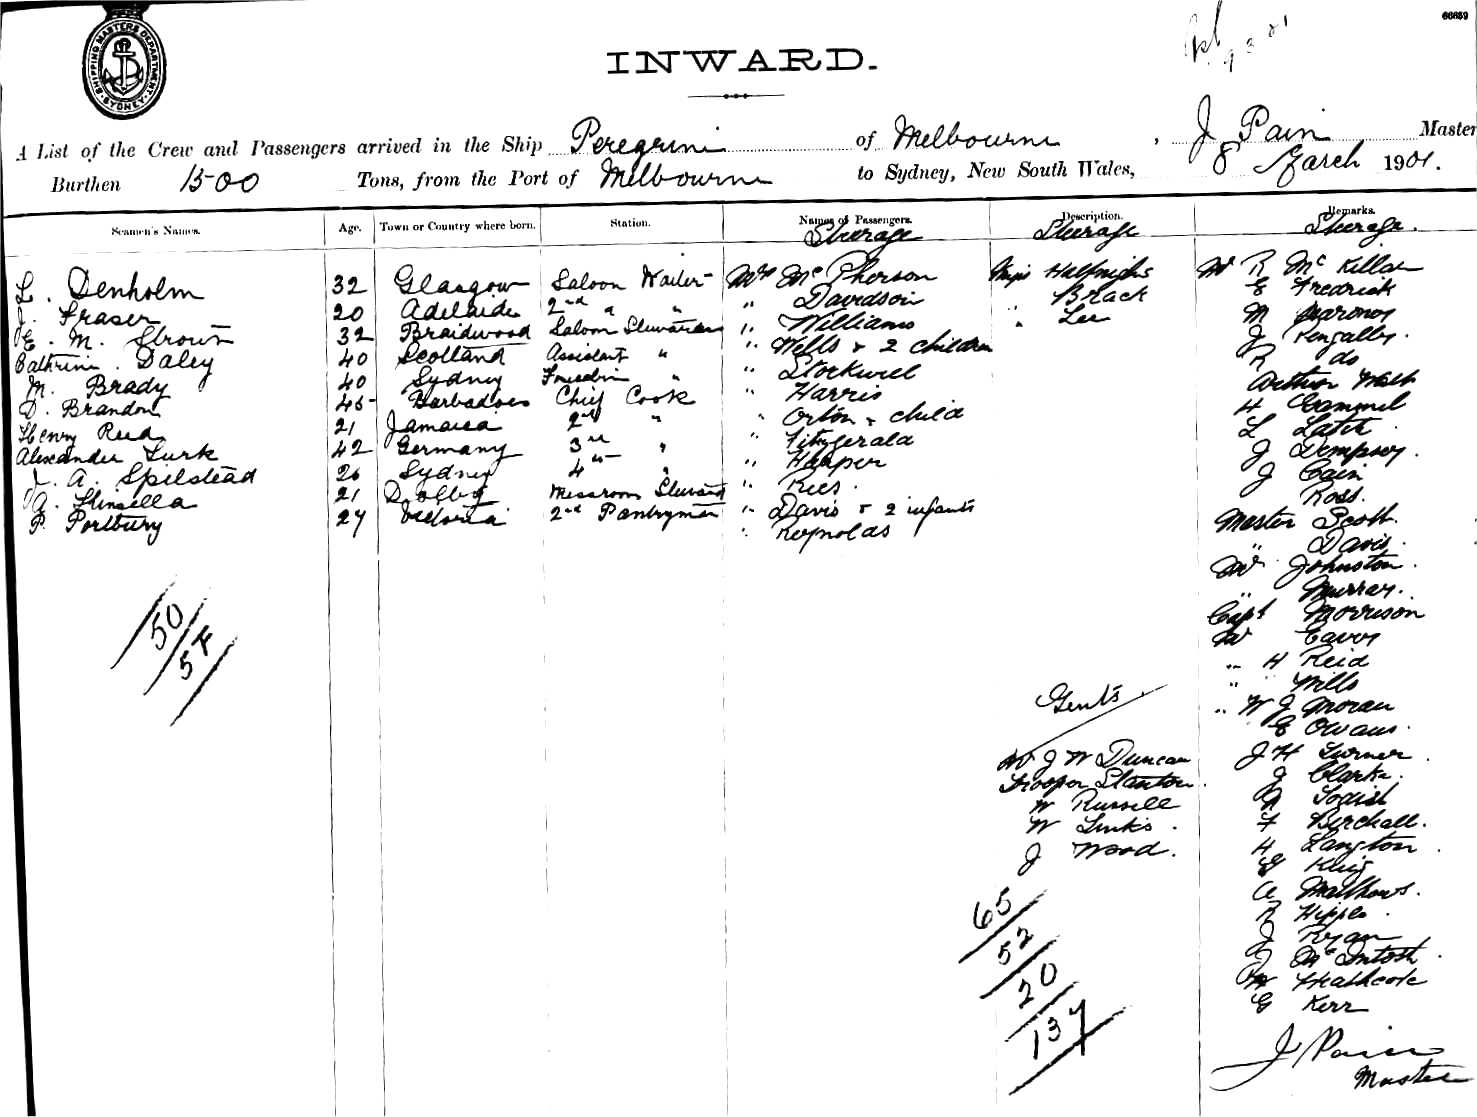 66659
SHIPPING MASTERS DEPARTMENT SYDNEY
INWARD.
A List of the Crew and Passengers arrived in the Ship Peregrine of Melbourne, J Pain Master
Burthen 1500 Tons, from the Port of Melbourne to Sydney, New South Wales, 8 March 1901.
Seamen's Names. Age. Town or Country where born. Station. Names of Passengers. Description. Remarks.
Steerage Steerage Steerage.
L. Denholm 32 Glasgow Saloon Waiter Mrs McPherson Miss Mr R McKillar
J. Fraser 20 Adelaide 2nd " " " Davidson " Brack E Fredrick
E. M. Stroud 32 Braidwood Saloon Stewardess " Williams " Lee M
Cathrine Daley 40 Scotland Assistant " " Wells & 2 children J Pengally.
M. Brady 40 Sydney " " Stockwell R do
D. Brandon 45 Barbadoes Chief Cook " Harris Arthur
Henry Reid 21 Jamaica 2nd " " Orton & child H Gammel
Alexander Turk 42 Germany 3rd " " Fitzgerald L
J. A. Spilstead 26 Sydney 4th " " Harper J Dempsey.
A. Kinsella 21 Messroom Steward " Rees. J Cain
P. Portbury 27 Victoria 2nd Pantryman " Davis & 2 infants Ross.
" Reynolds Master Scott.
" Davis.
Mr Johnston.
" Murray.
Capt Morrison
Mr
" H Reid
" Mills
" W J Moran
E Owens.
50
57
Gents
Mr J W Duncan J H Turner.
Trooper Stanton. J Clarke.
W Russell
W Links. F Birchall.
J Wood. H Langton.
G King
A Mathews.
R Hipple.
J Ryan
J McIntosh.
M Heathcote
G Kerr
65
52
20
137
J Pain
Master